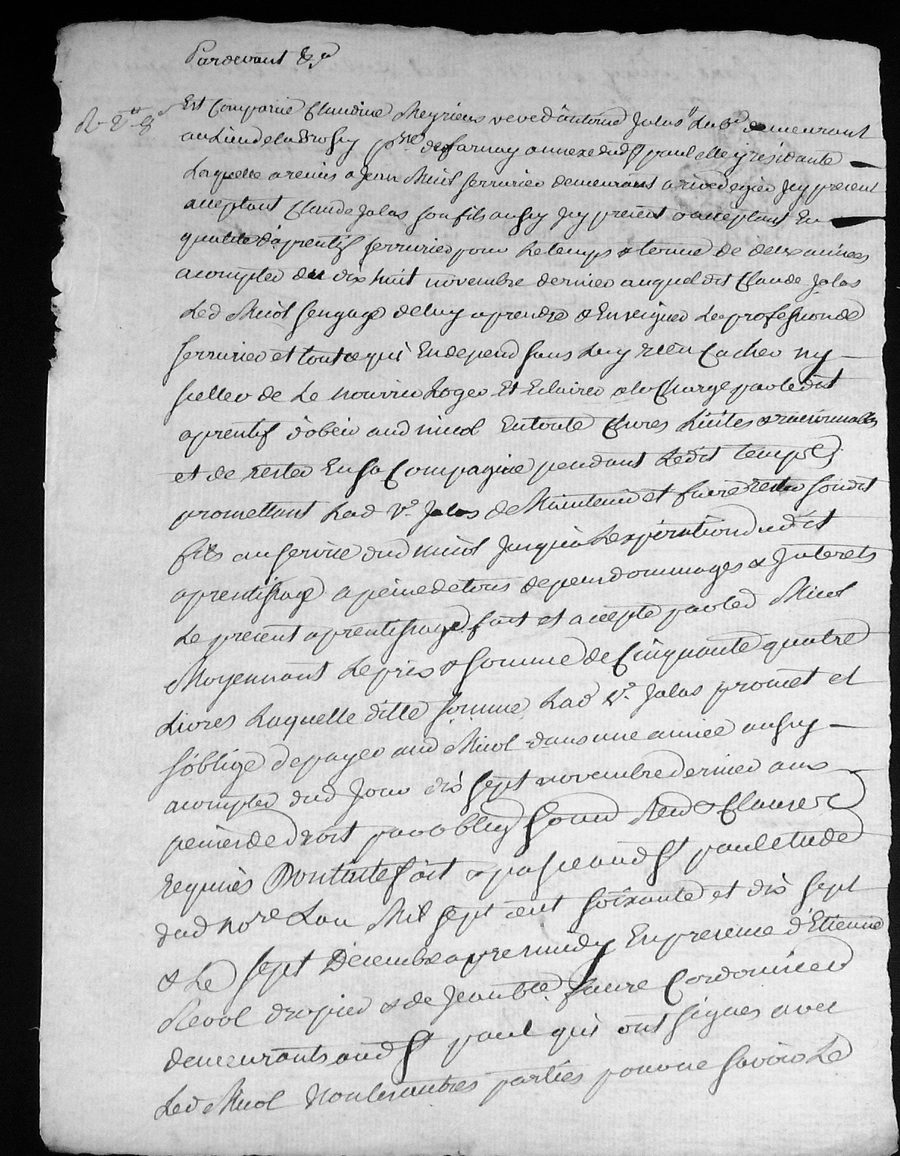 Pardevant &c
Est Comparüe Claudine Meyrieux veve d'antoine Jalas demeurant
au Lieu de la Brosy psse de farnay annexe dud St paul elle y residante
Laquelle a remis a Jean Micol serrurier demeurant a rivedegier Jcy present
acceptant Claude Jalas son fils aussy Jcy present & acceptant En
qualité d'aprentif serrurier pour Le temps & terme de deux années
a compter du dix huit novembre dernier auquel dit Claude Jalas
Led Micol s'engage de luy aprendre & Enseigner La profession de
serrurier et tout ce qui En depend sans Luy rien Cacher ny
celler de Le nourrir Loger Et Eclairer a la Charge par ledit
aprentif d'obeir aud micol En toute Choses Licites & raisonnables
et de rester En sa Compagnie pendant Ledit temps
promettant Lad ve Jalas de Maintenir et faire rester sondit
fils au service dud micol Jusqu'a L'expiration dudit
aprentissage a peine de tous depens dommages & Interets
Le present aprentissage fait et accepté par led Micol
Moyennant Le prix & somme de Cinquante quatre
Livres Laquelle ditte somme Lad ve Jalas promet et
s'oblige de payer aud Micol dans une année aussy
a compter dud Jour dix sept novembre dernier aux
peines de Droit par obligon soumd Rend & Clauses
requises Dont acte fait & passé aud St paul etude
dud nore L'an Mil sept cent soixante et dix sept
& Le sept Decembre apres midy En presence d'Etienne
Revol drapier & de Jean bte faure Cordonnier
demeurants aud St paul qui ont signes avec
Led Micol Non les autres parties pour ne savoir Le